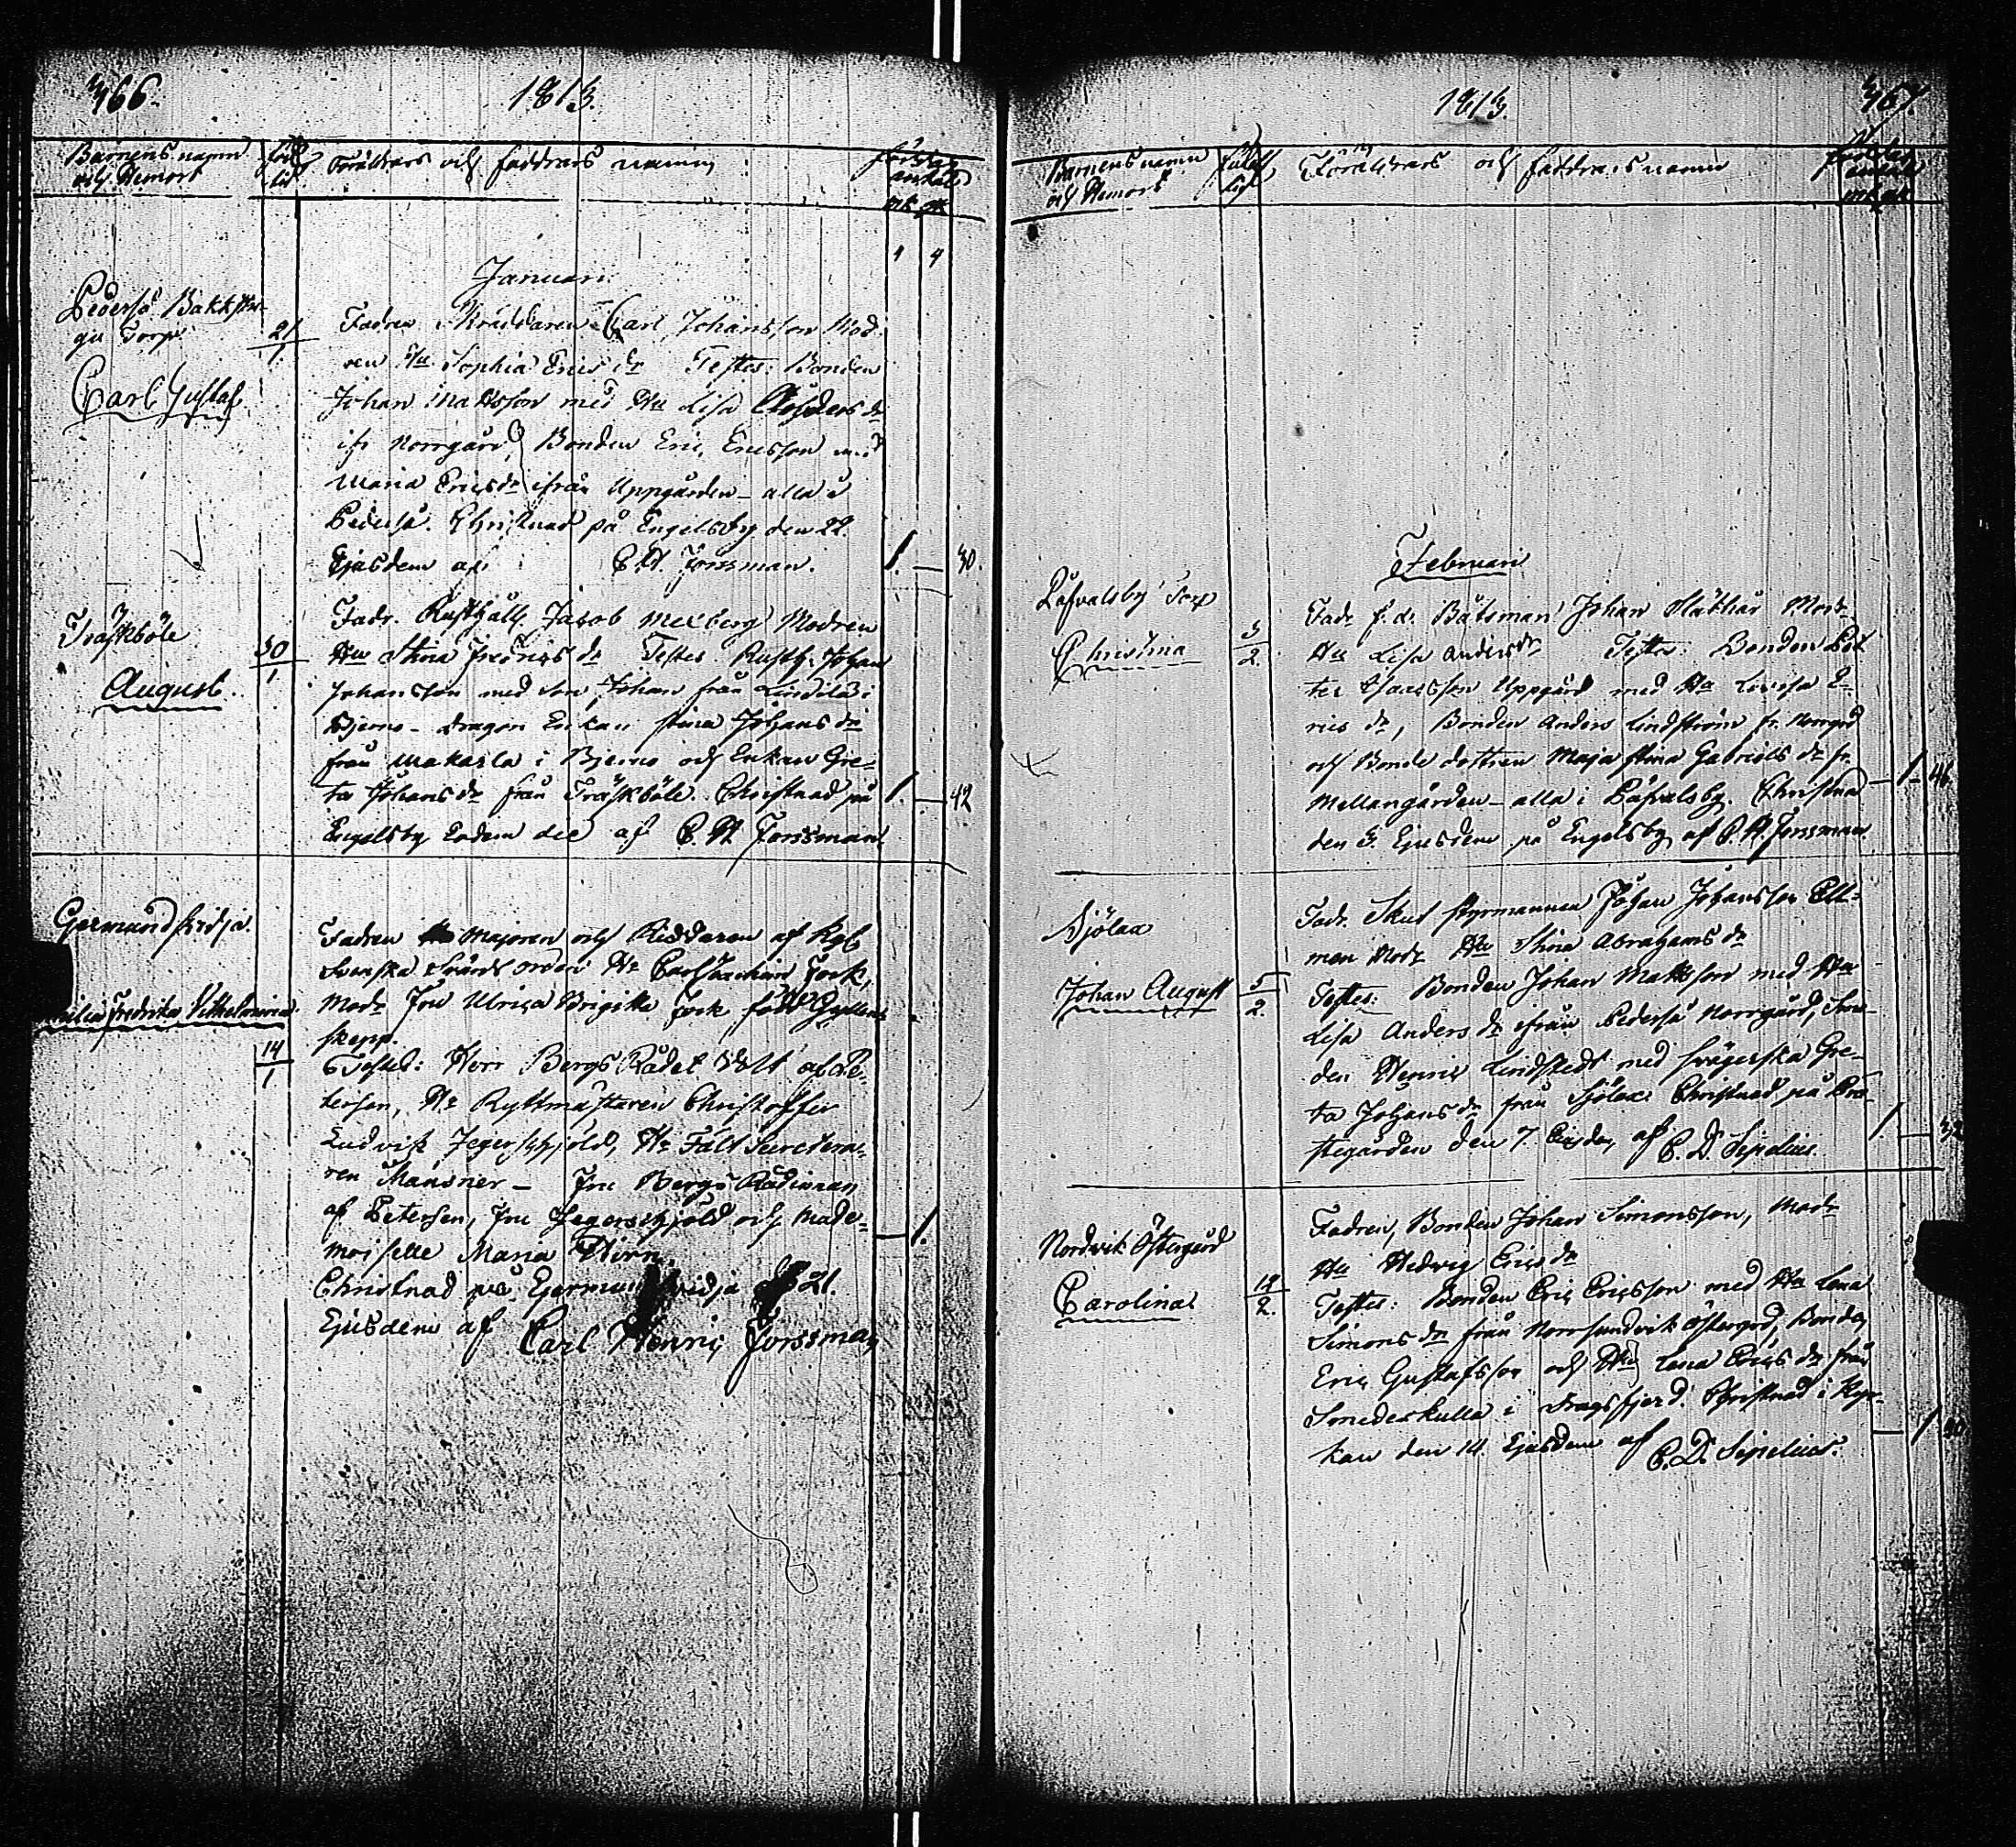 366.
1813.
Barnens namn
och Hemort
född
tid
Föräldrars och faddrars namn
Januari.
Pederså Backstu-
gu Torp
21/1.
Carl Gustaf
Fadren Skräddaren Carl Johansson Mod-
ren Hu Sophia Erics dr Testes: Bonden
Johan Mattsson med Hu Lisa Anders dr
ifr Norrgård, Bonden Eric Ericsson med
Maria Erics dr ifrån Uppgården – alla i
Pederså. Christnad på Engelsby den 22.
Ejusdem af C. H. Forssman.
1. — 30.
Träskböle
30/1
August.
Fadr. Rusthåll. Jacob Melberg Modren
Hu Stina Fredrics dr Testes Rusth. Johan
Johansson med son Johan från
Bjerno – Dragon Enkan Stina Johans dr
från Makarla i Bjerno och Enkan Gre-
ta Johans dr från Träskböle. Christnad på
Engelsby Eodem die af C. H. Forssman
1. — 42
Germundsvidja.
Fredrika Vilhelmina
14/1
Fadren Majoren och Riddaren af Kgl.
Svenska Svärds orden Hr Carl Fock,
Modr Fru Ulrica Brigitta Fock född Gyllen-
skepp.
Testes: Herr Bergs Rådet af Pe-
tersen, Hr Ryttmästaren Christoffer
Ludvik Jegerschjöld, Hr Fält Secretera-
ren – Fru Bergs Rådinnan
af Petersen, Fru Jegerschjöld och Made-
moiselle Maria
— 1.
Christnad på Germundsvidja d. 21.
Ejusdem af Carl Henric Forssman
1813.
367.
Barnens namn
och Hemort
född
tid
Föräldrars och faddrars namn
Februari
Påfvalsby Torp
Christina
3/2.
Fadr f.d. Båtsman Johan Modr
Hu Lisa Anders dr Testes: Bonden Pet-
ter Isaacsson Uppgård med Hu Lovisa E-
rics dr, Bonden Anders Lindström fr. Norrgrd
och Bonde dottren Maja Stina Gabriels dr fr.
Mellangården – alla i Påfvalsby. Christnad
den 5. Ejusdem på Engelsby af C. H. Forssman
— 1 — 46.
Sjölax
Johan August
5/2.
Fadr. Skut styrmannen Johan Johansson Ell-
man Modr Hu Stina Abrahams dr
Testes: Bonden Johan Mattsson med Hu
Lisa Anders dr ifrån Pederså Norrgård,
den Henric Lindstedt med svägerska Gre-
ta Johans dr från Sjölax. Christnad på Prä-
stegården den 7. Ejusdem af C. D. Sipelius.
1. — 32
Nordvik Östergård
Carolina
12/2.
Fadren, Bonden Johan Simonsson, Modr
Hu Hedvig Erics dr
Testes: Bonden Eric Ericsson med Hu Lena
Simons dr från Norrsundvik Östergrd, Bonden
Eric Gustafsson och Hu Lena Erics dr från
Smedeskulla i Dragsfjerd. Christnad i Kyr-
kan den 14. Ejusdem af C. D. Sipelius.
— 1 30